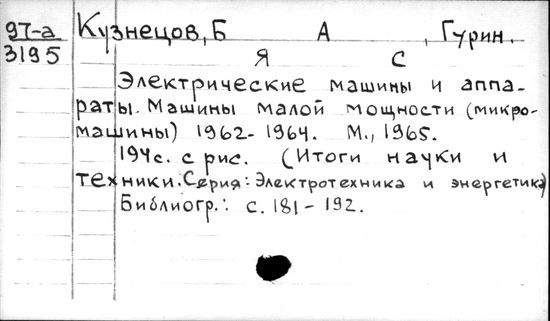 97-а Кузнецов, Б А , Гурин.
3195 Я С
Электрические машины и аппа-
раты. Машины малой мощности (микро-
машины) 1962-1964. М., 1965.
194с. с рис. (Итоги науки и
техники. Серия: Электротехника и энергетика)
Библиогр.: с. 181-192.